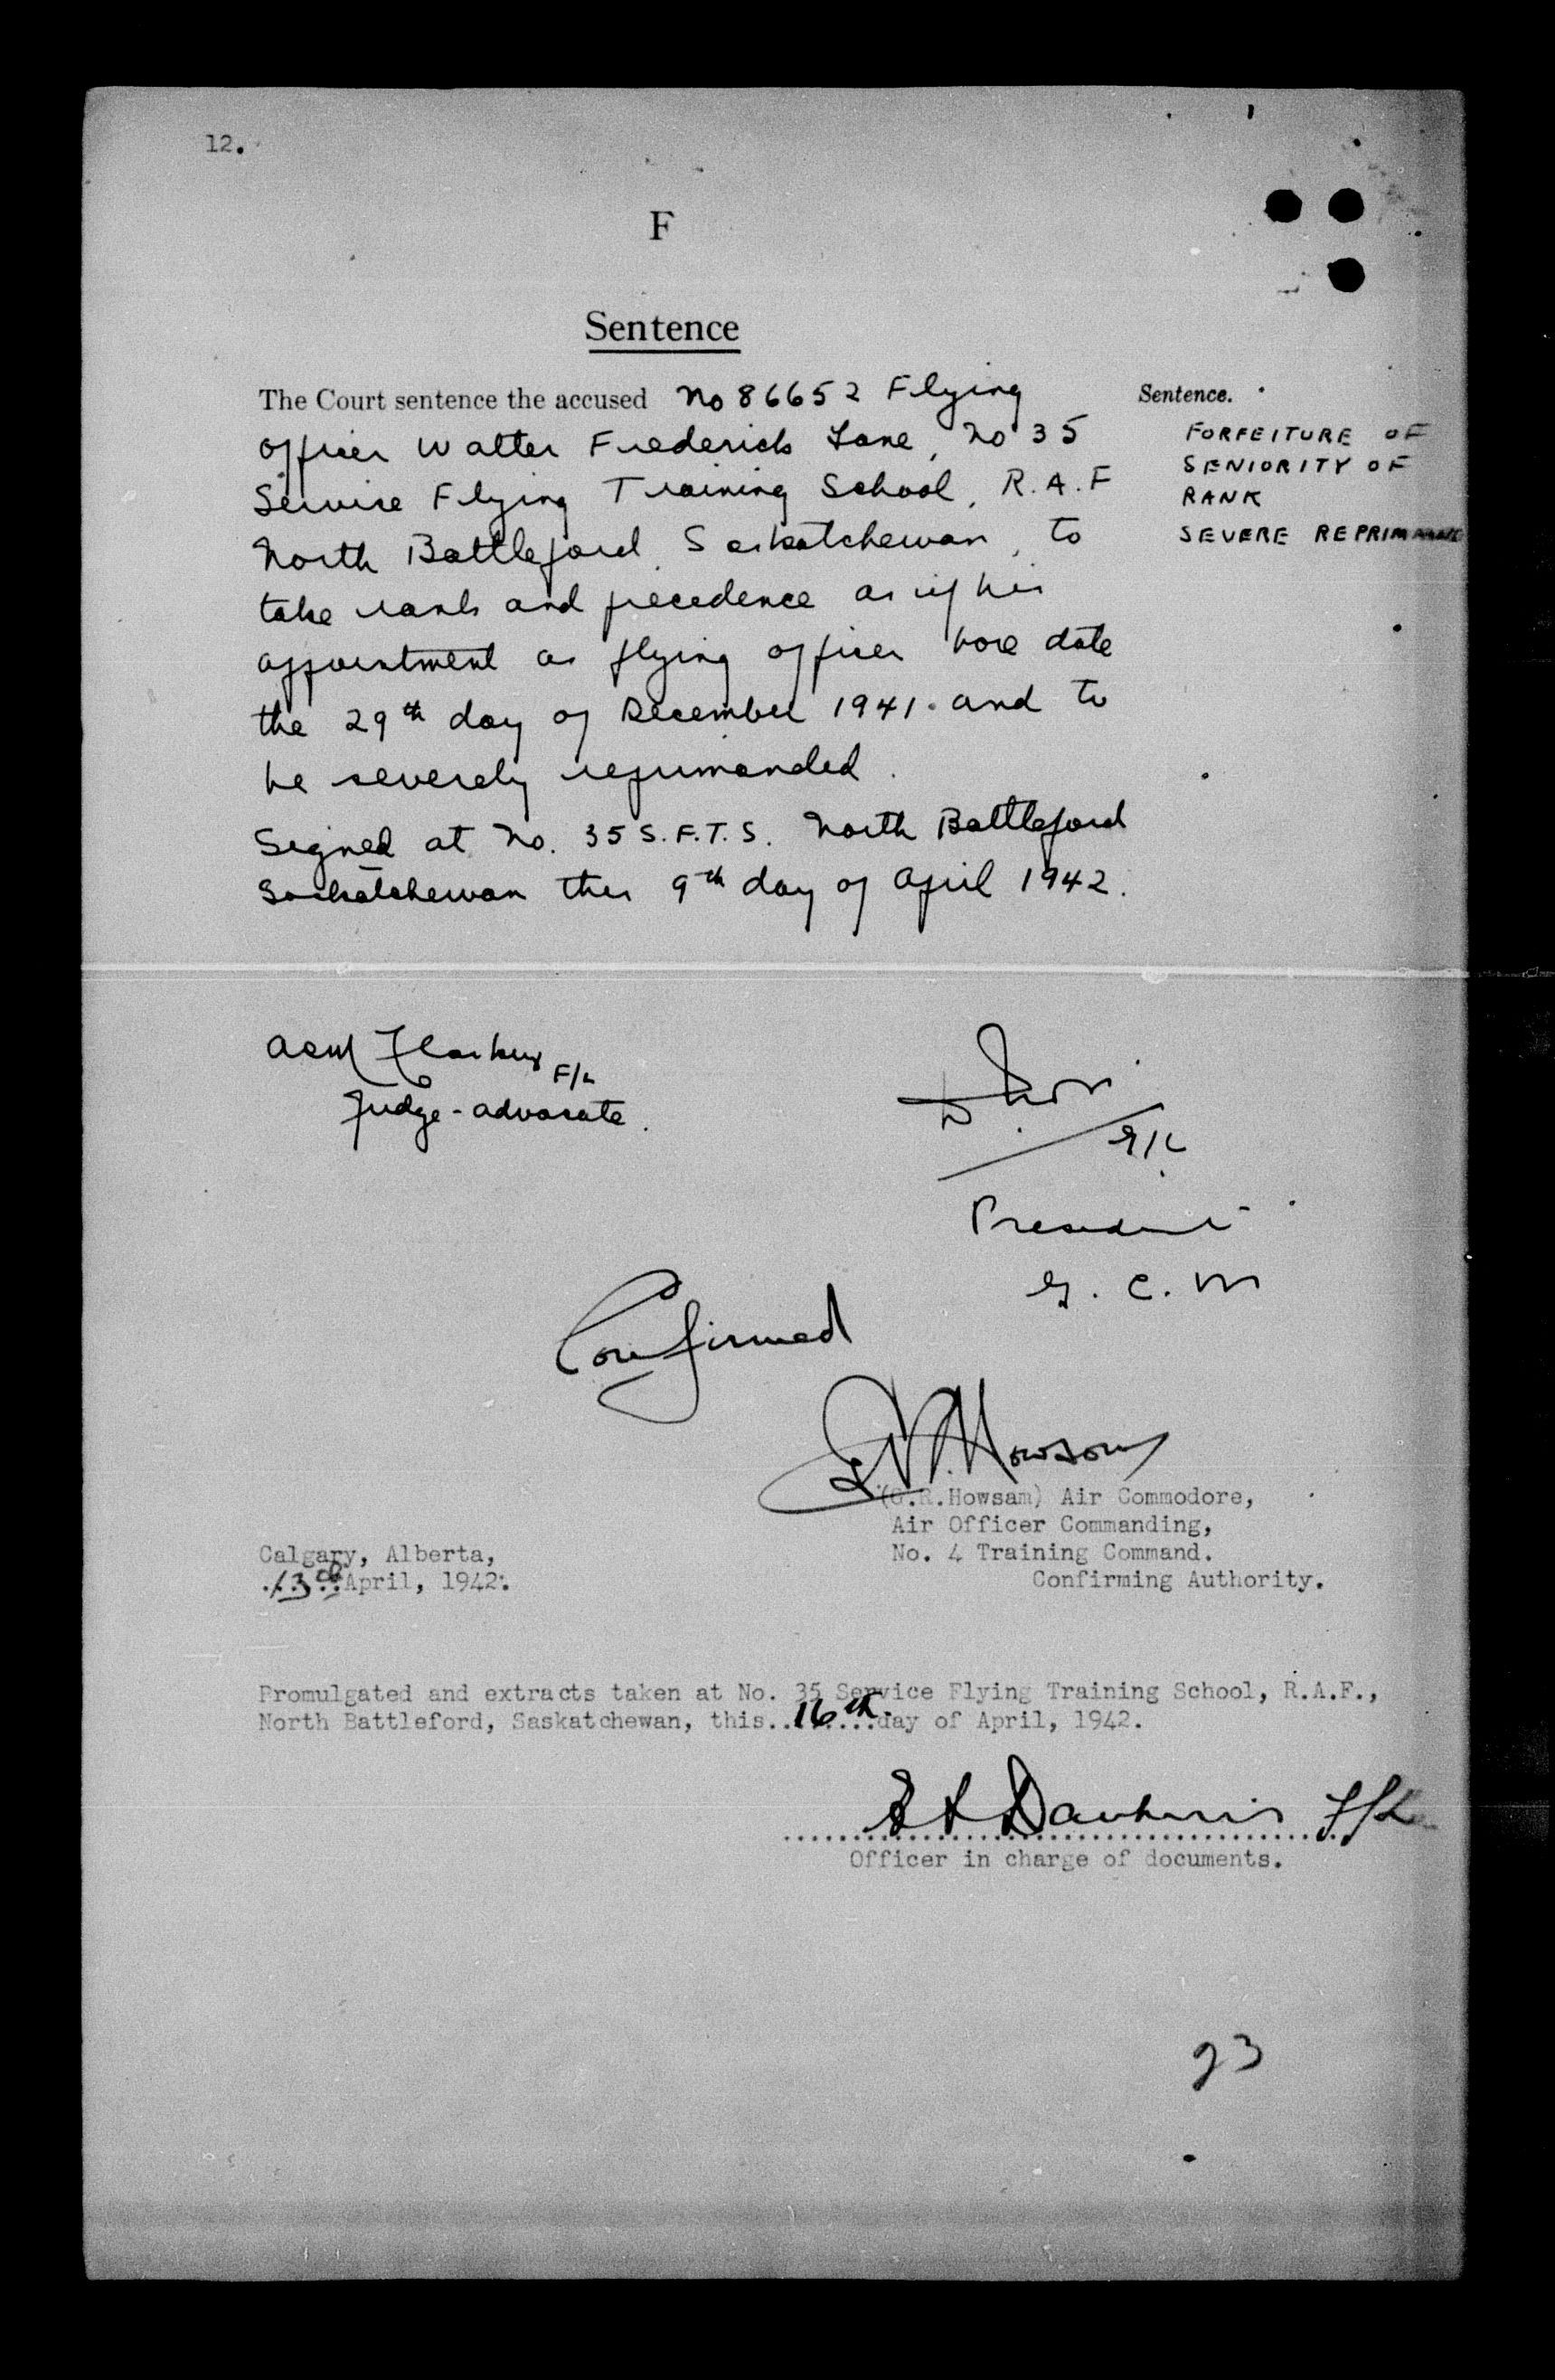 12.
F
Sentence
The Court sentence the accused No 86652 Flying
Officer Walter Frederick Lane, No 35
Service Flying Training School, R.A.F
North Battleford, Saskatchewan, to
take rank and precedence as if his
appointment as flying officer bore date
the 29th day of December 1941. and to
be severely reprimanded.
Signed at No. 35 S.F.T.S. North Battleford
Saskatchewan this 9th day of April 1942.
Sentence.
FORFEITURE OF
SENIORITY OF
RANK
SEVERE REPRIMAND
F/L
Judge-advocate.
President
G. C. M
Confirmed
G.R. Howsam
(G.R.Howsam) Air Commodore,
Air Officer Commanding,
No. 4 Training Command.
Confirming Authority.
Calgary, Alberta,
13th April, 1942.
Promulgated and extracts taken at No. 35 Service Flying Training School, R.A.F.,
North Battleford, Saskatchewan, this..16th..day of April, 1942.
Officer in charge of documents.
23